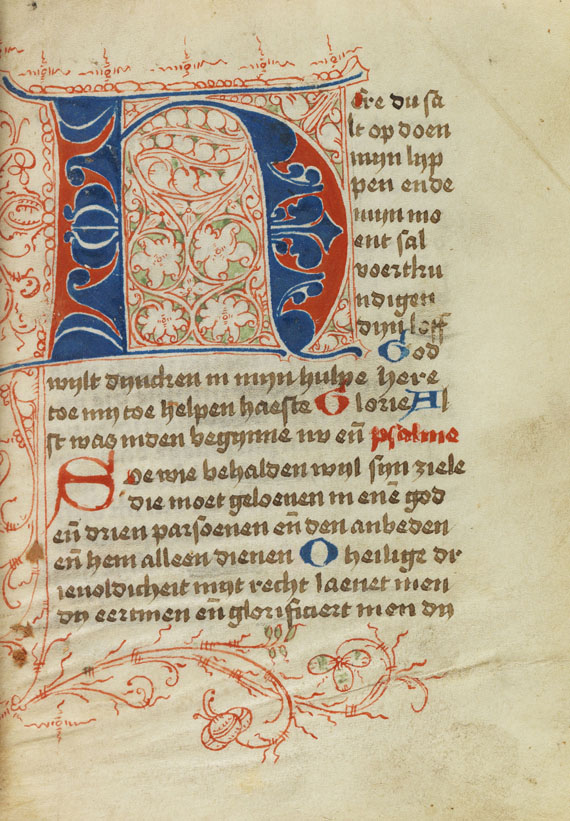 Here du sa
lt op doen
mijn lijp
pen ende
mijn mo
ent sal
voertku
ndigen
dijn loff
God
wijlt dyncken in mijn hulpe here
toe mij toe helpen haeste Glorie Al
st was inden begynne nv en̄ psalme
Soe wie behalden wijl sijn ziele
die moet geloeuen in enē god
en̄ drien parsoenen en̄ den anbeden
en̄ hem alleen dienen O heilige dr
ieuoldicheit mijt recht laeuet men
dy eertmen en̄ glorificiert men dy